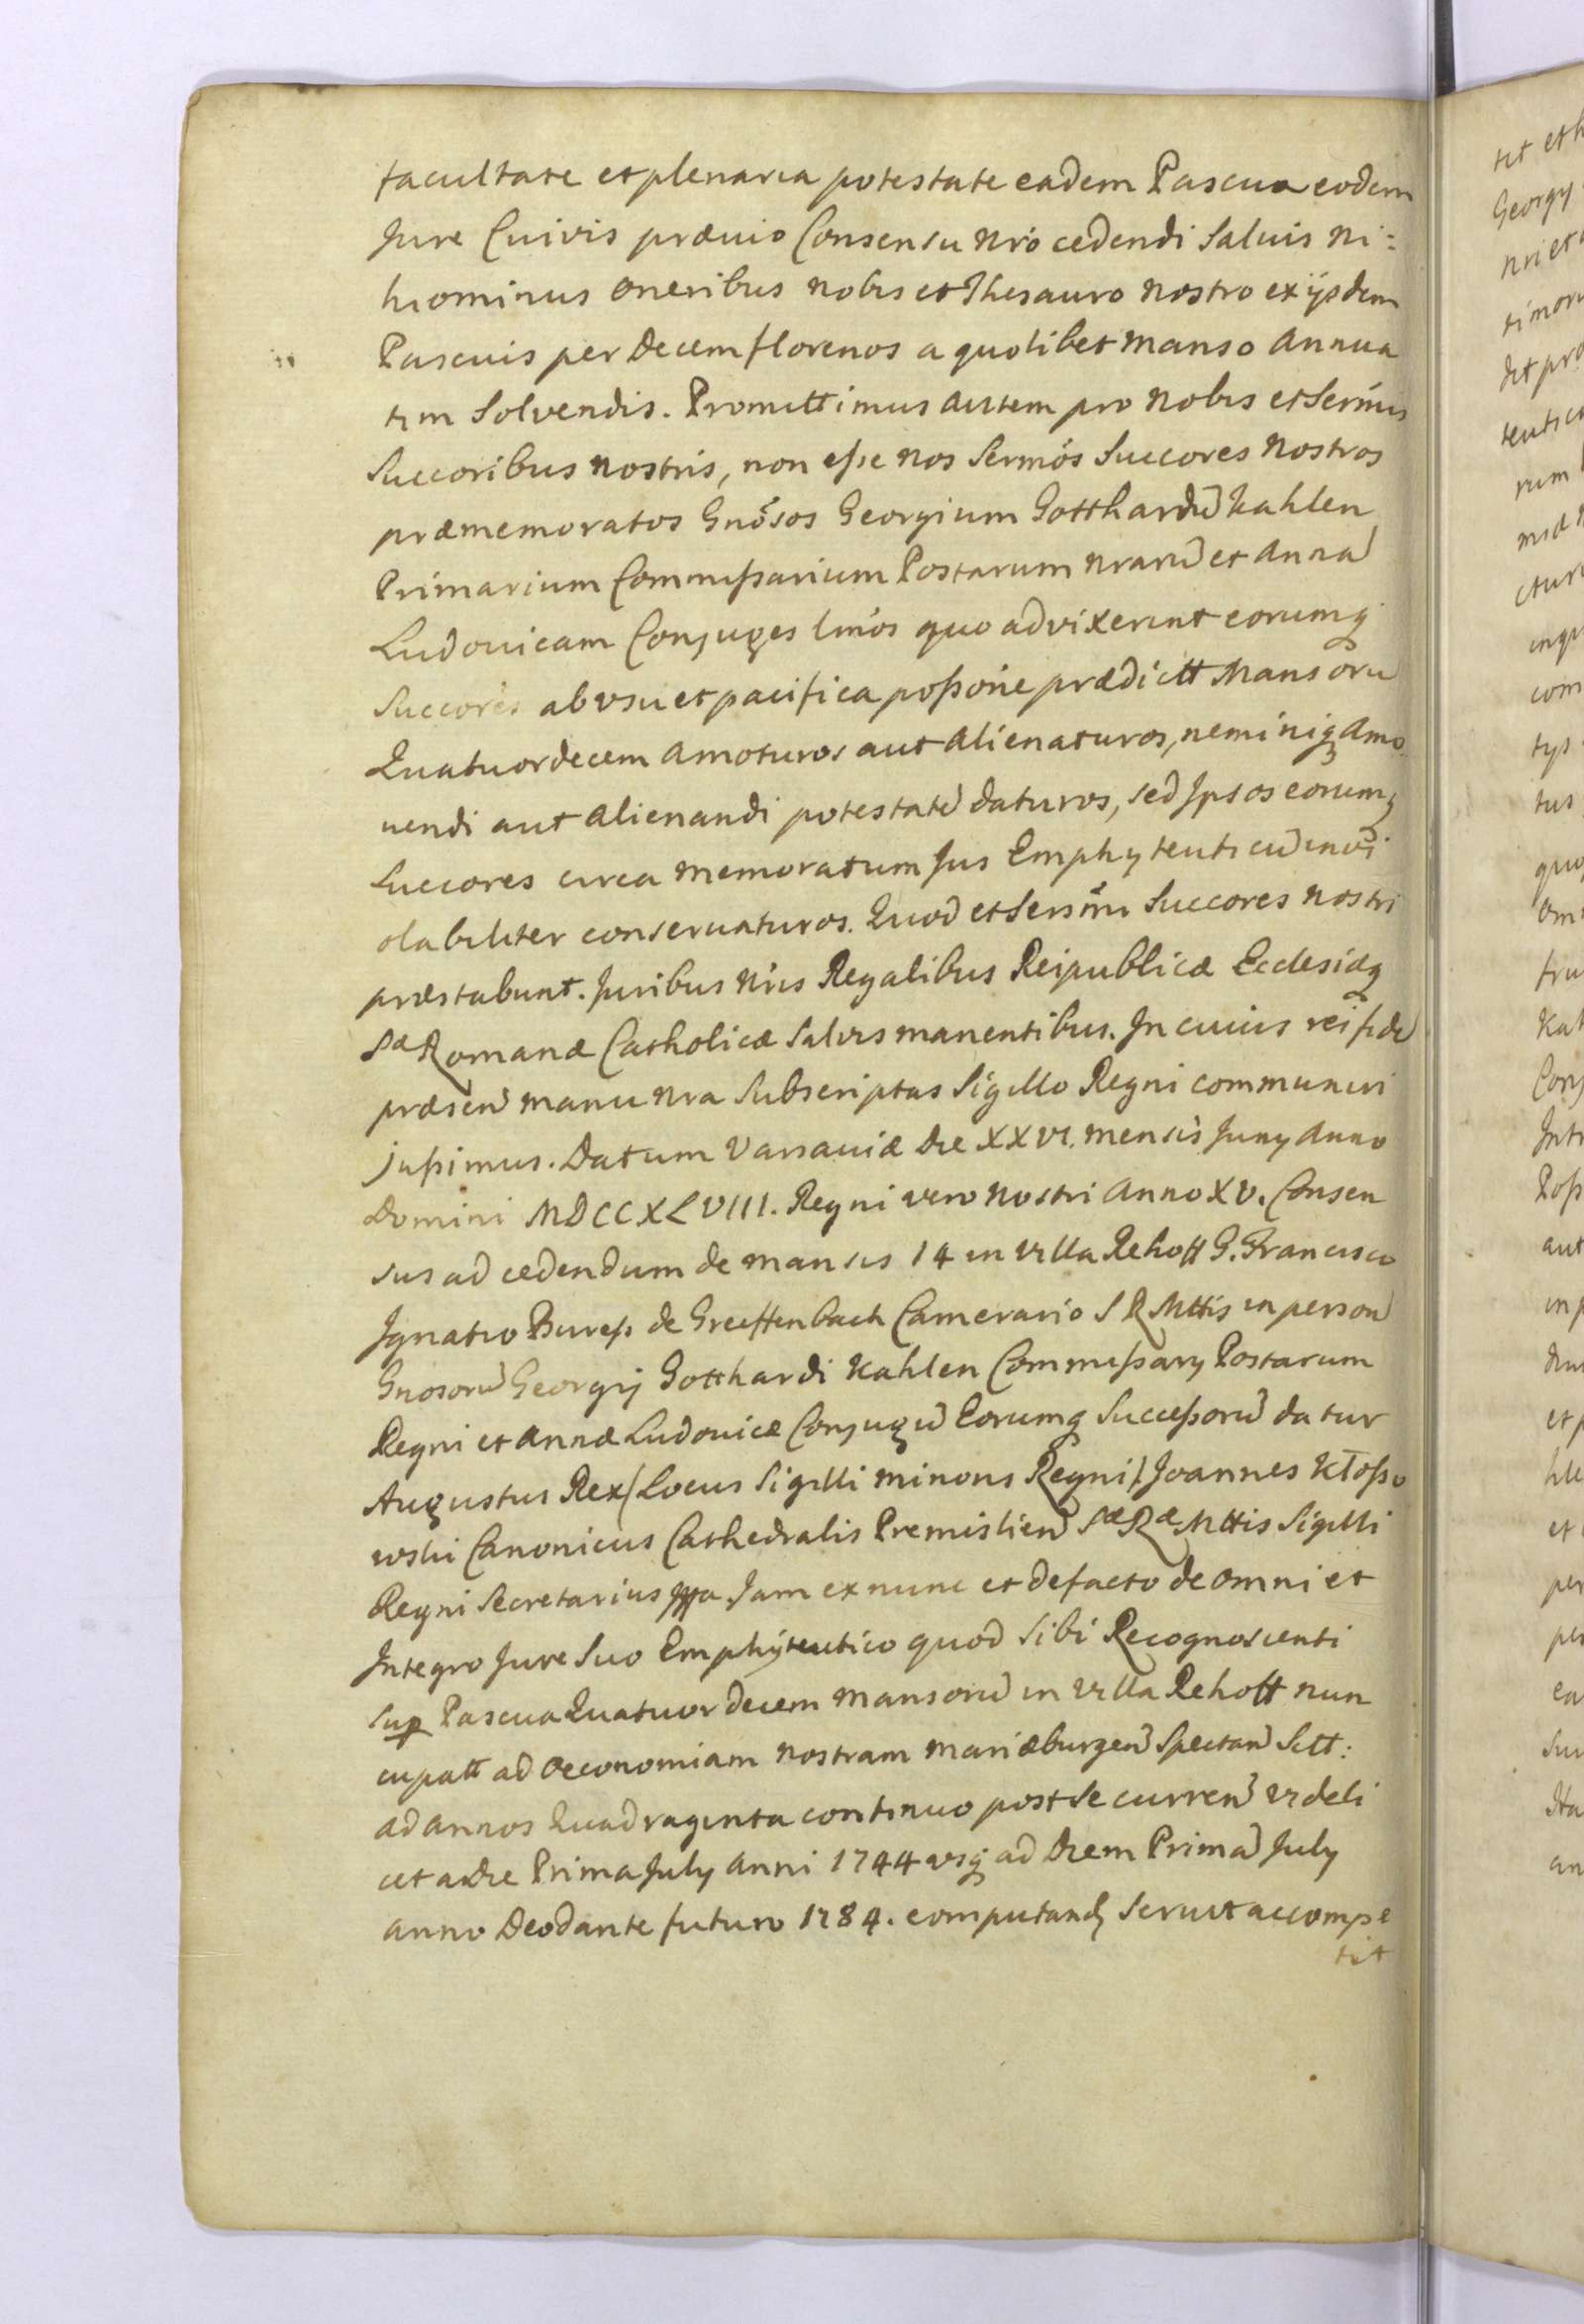 facultate et plenaria potestate eadem Pascua eodem
Jure Cuivis prævio Consensu Nrõ cedendi Salvis ni=
hiominus oneribus nobis et Thesauro nostro ex ijsdem
Pascuis per Decem florenos a quolibet manso Annua
tim Solvendis. Promittimus autem pro Nobis et Serm̃is
Succoribus nostris, non eſse nos Sermõs Succores Nostros
præmemoratos Gnõsos Georgium Gotthardũ Kahlen
Primarium Commiſsarium Postarum nrarũ et Annã
Ludovicam Conjuges lmõs quo advixerint eorumq
Succores ab vsu et pacifica poſsoñe prædictt Mansorũ
Quatuordecem amoturos aut alienaturos, neminiq Amo
uendi aut alienandi potestatẽ daturos, sed Ipsos eorumq
Succores circa memoratum Jus Emphyteuticũ invi
olabiliter conservaturos. Quod et Serm̃i Succores nostri
præstabunt. Juribus nris Regalibus Reipublicæ Ecclesiæq
Sæ Romanæ Catholicæ Salvis manentibus. In cuius rei fidẽ
præseñ manu nra Subscriptas Sigillo Regni communiri
juſsimus. Datum Varsaviæ die XXVI. mensis Juny Anno
Domini MDCCXLVIII. Regni vero nostri anno XV. Consen
sus ad cedendum de mansis 14 in villa Rehoff G. Francisco
Ignatio Bureſs de Greiffenbach Camerario S R Mttis in persoñ
Gnosorũ Georgij Gotthardi Kahlen Commiſsary Postarum
Regni et Annæ Ludovicæ Conjugũ Eorumq Succeſsorũ datur
Augustus Rex/Locus Sigilli minoris Regni/Joannes Kłoſso
wski Canonicus Cathedralis Premislieñ Sæ Ræ Mttis Sigilli
Regni Secretarius Jam ex nunc et de facto de omni et
Integro Jure Suo Emphyteutico quod Sibi Recognoscenti
Sup Pascua Quatuordecem mansorũ in villa Rehoff nun
cupatt ad Oeconomiam nostram mariæburgeñ Spectañ Sctt:
ad annos Quadraginta continuo post se curreñ videli
cet a die Prima July anni 1744 vsq ad diem Primã July
anno Deo dante futuro 1784. computand Servit ac compe
tit